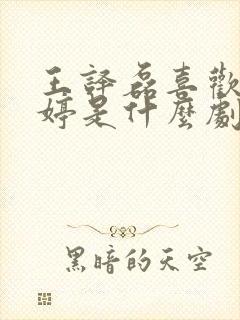 王譯磊喜歡
婷是什麼劇
黑暗的天空